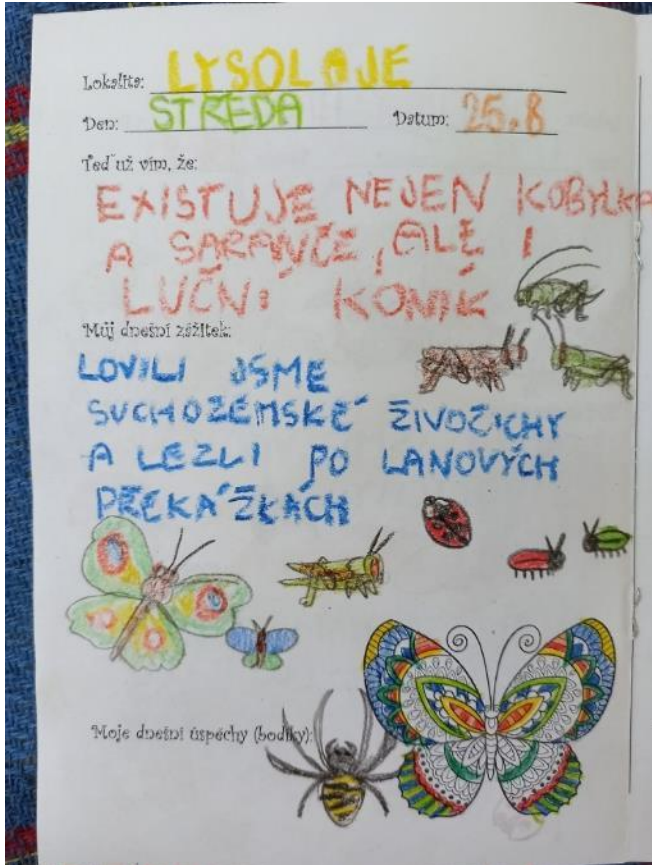 Lokalita: LYSOLAJE
Den: STŘEDA Datum: 25.8
Teď už vím, že:
EXISTUJE NEJEN KOBYLKA
A SARANČE, ALE I
LUČNÍ KONÍK
Můj dnešní zážitek:
LOVILI JSME
SUCHOZEMSKÉ ŽIVOČICHY
A LEZLI PO LANOVÝCH
PŘEKÁŽKÁCH
Moje dnešní úspěchy (bodíky):